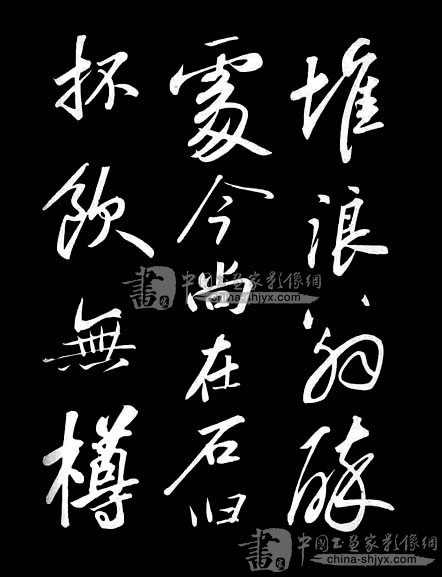 堆浪翁醉
處今尚在石臼
抔飲無樽
書 中国书画家影像網
china-shjyx.com
書 中国书画家影像網
china-shjyx.com